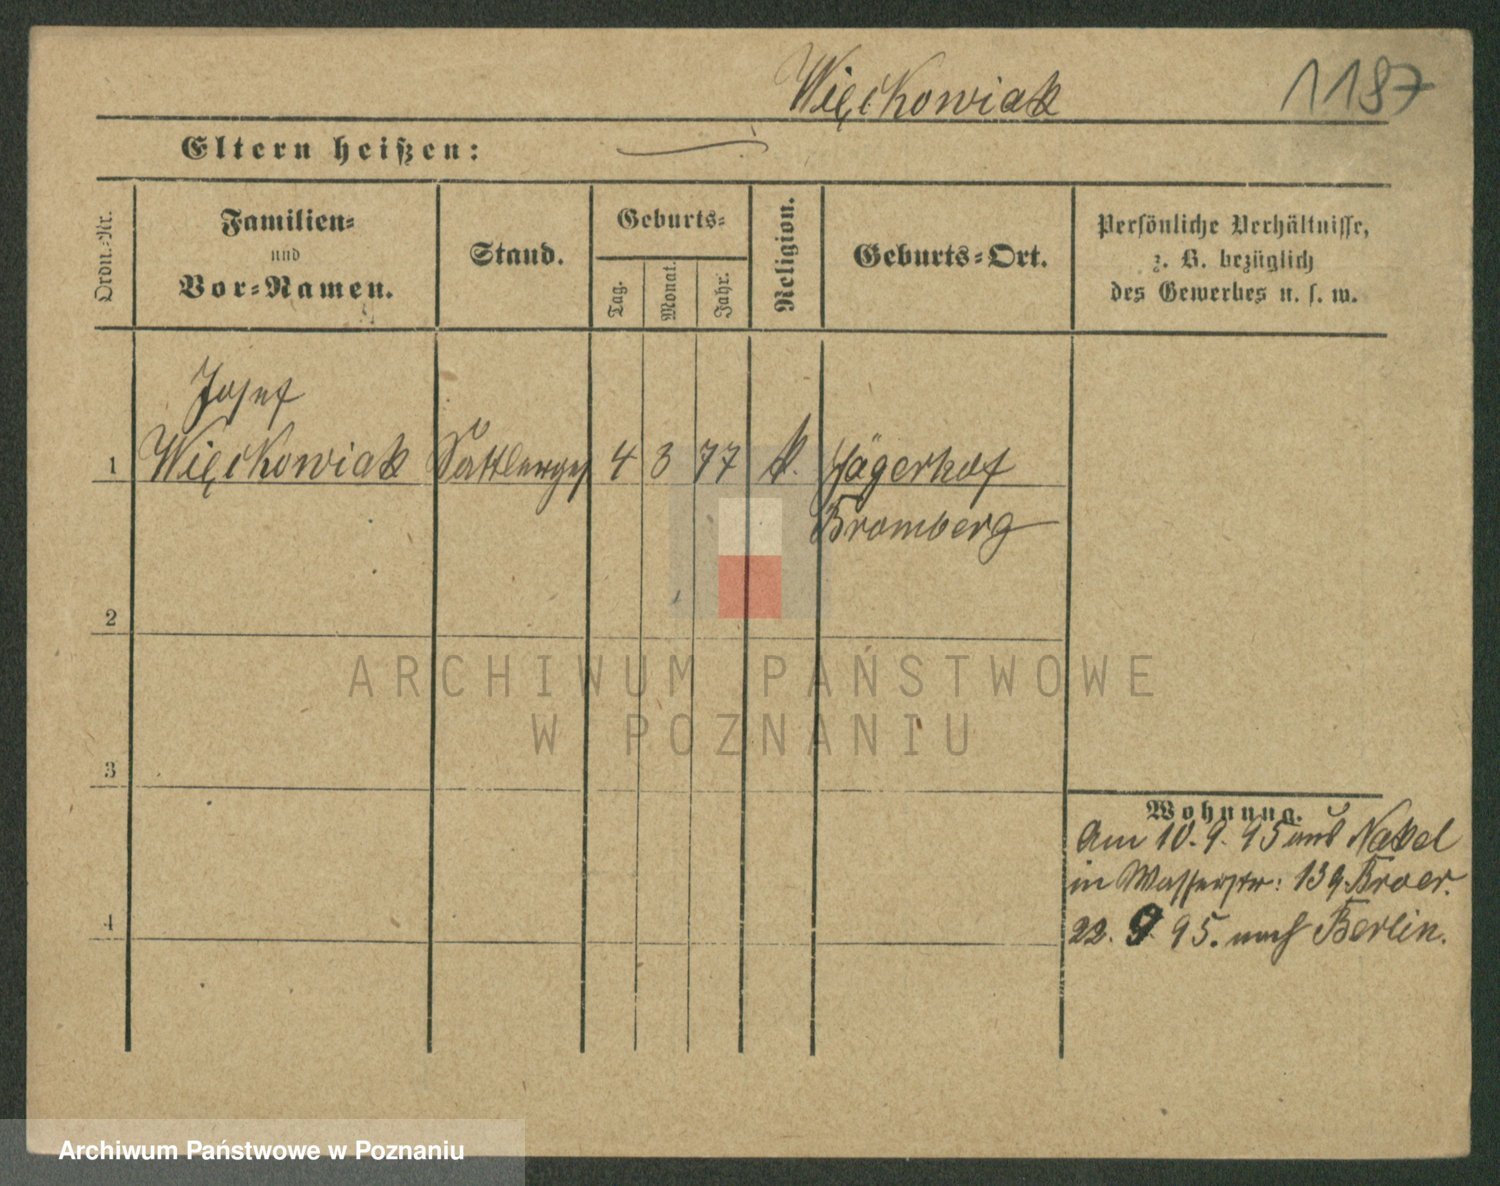 Więckowiak 1187
Eltern heißen:
Ordn.-Nr.
Familien-
und
Vor-Namen.
Stand.
Geburts-
Tag.
Monat.
Jahr.
Religion.
Geburts-Ort.
Persönliche Verhältnisse,
z. B. bezüglich
des Gewerbes u. s. w.
Josef
1 Więckowiak Sattlerges 4 3 77 k. Jägerhof
Bromberg
2
3
4
Wohnung.
Am 10. 9. 95 aus Nakel
in Wasserstr: 139
22. 9. 95. nach Berlin.
ARCHIWUM PAŃSTWOWE
W POZNANIU
Archiwum Państwowe w Poznaniu